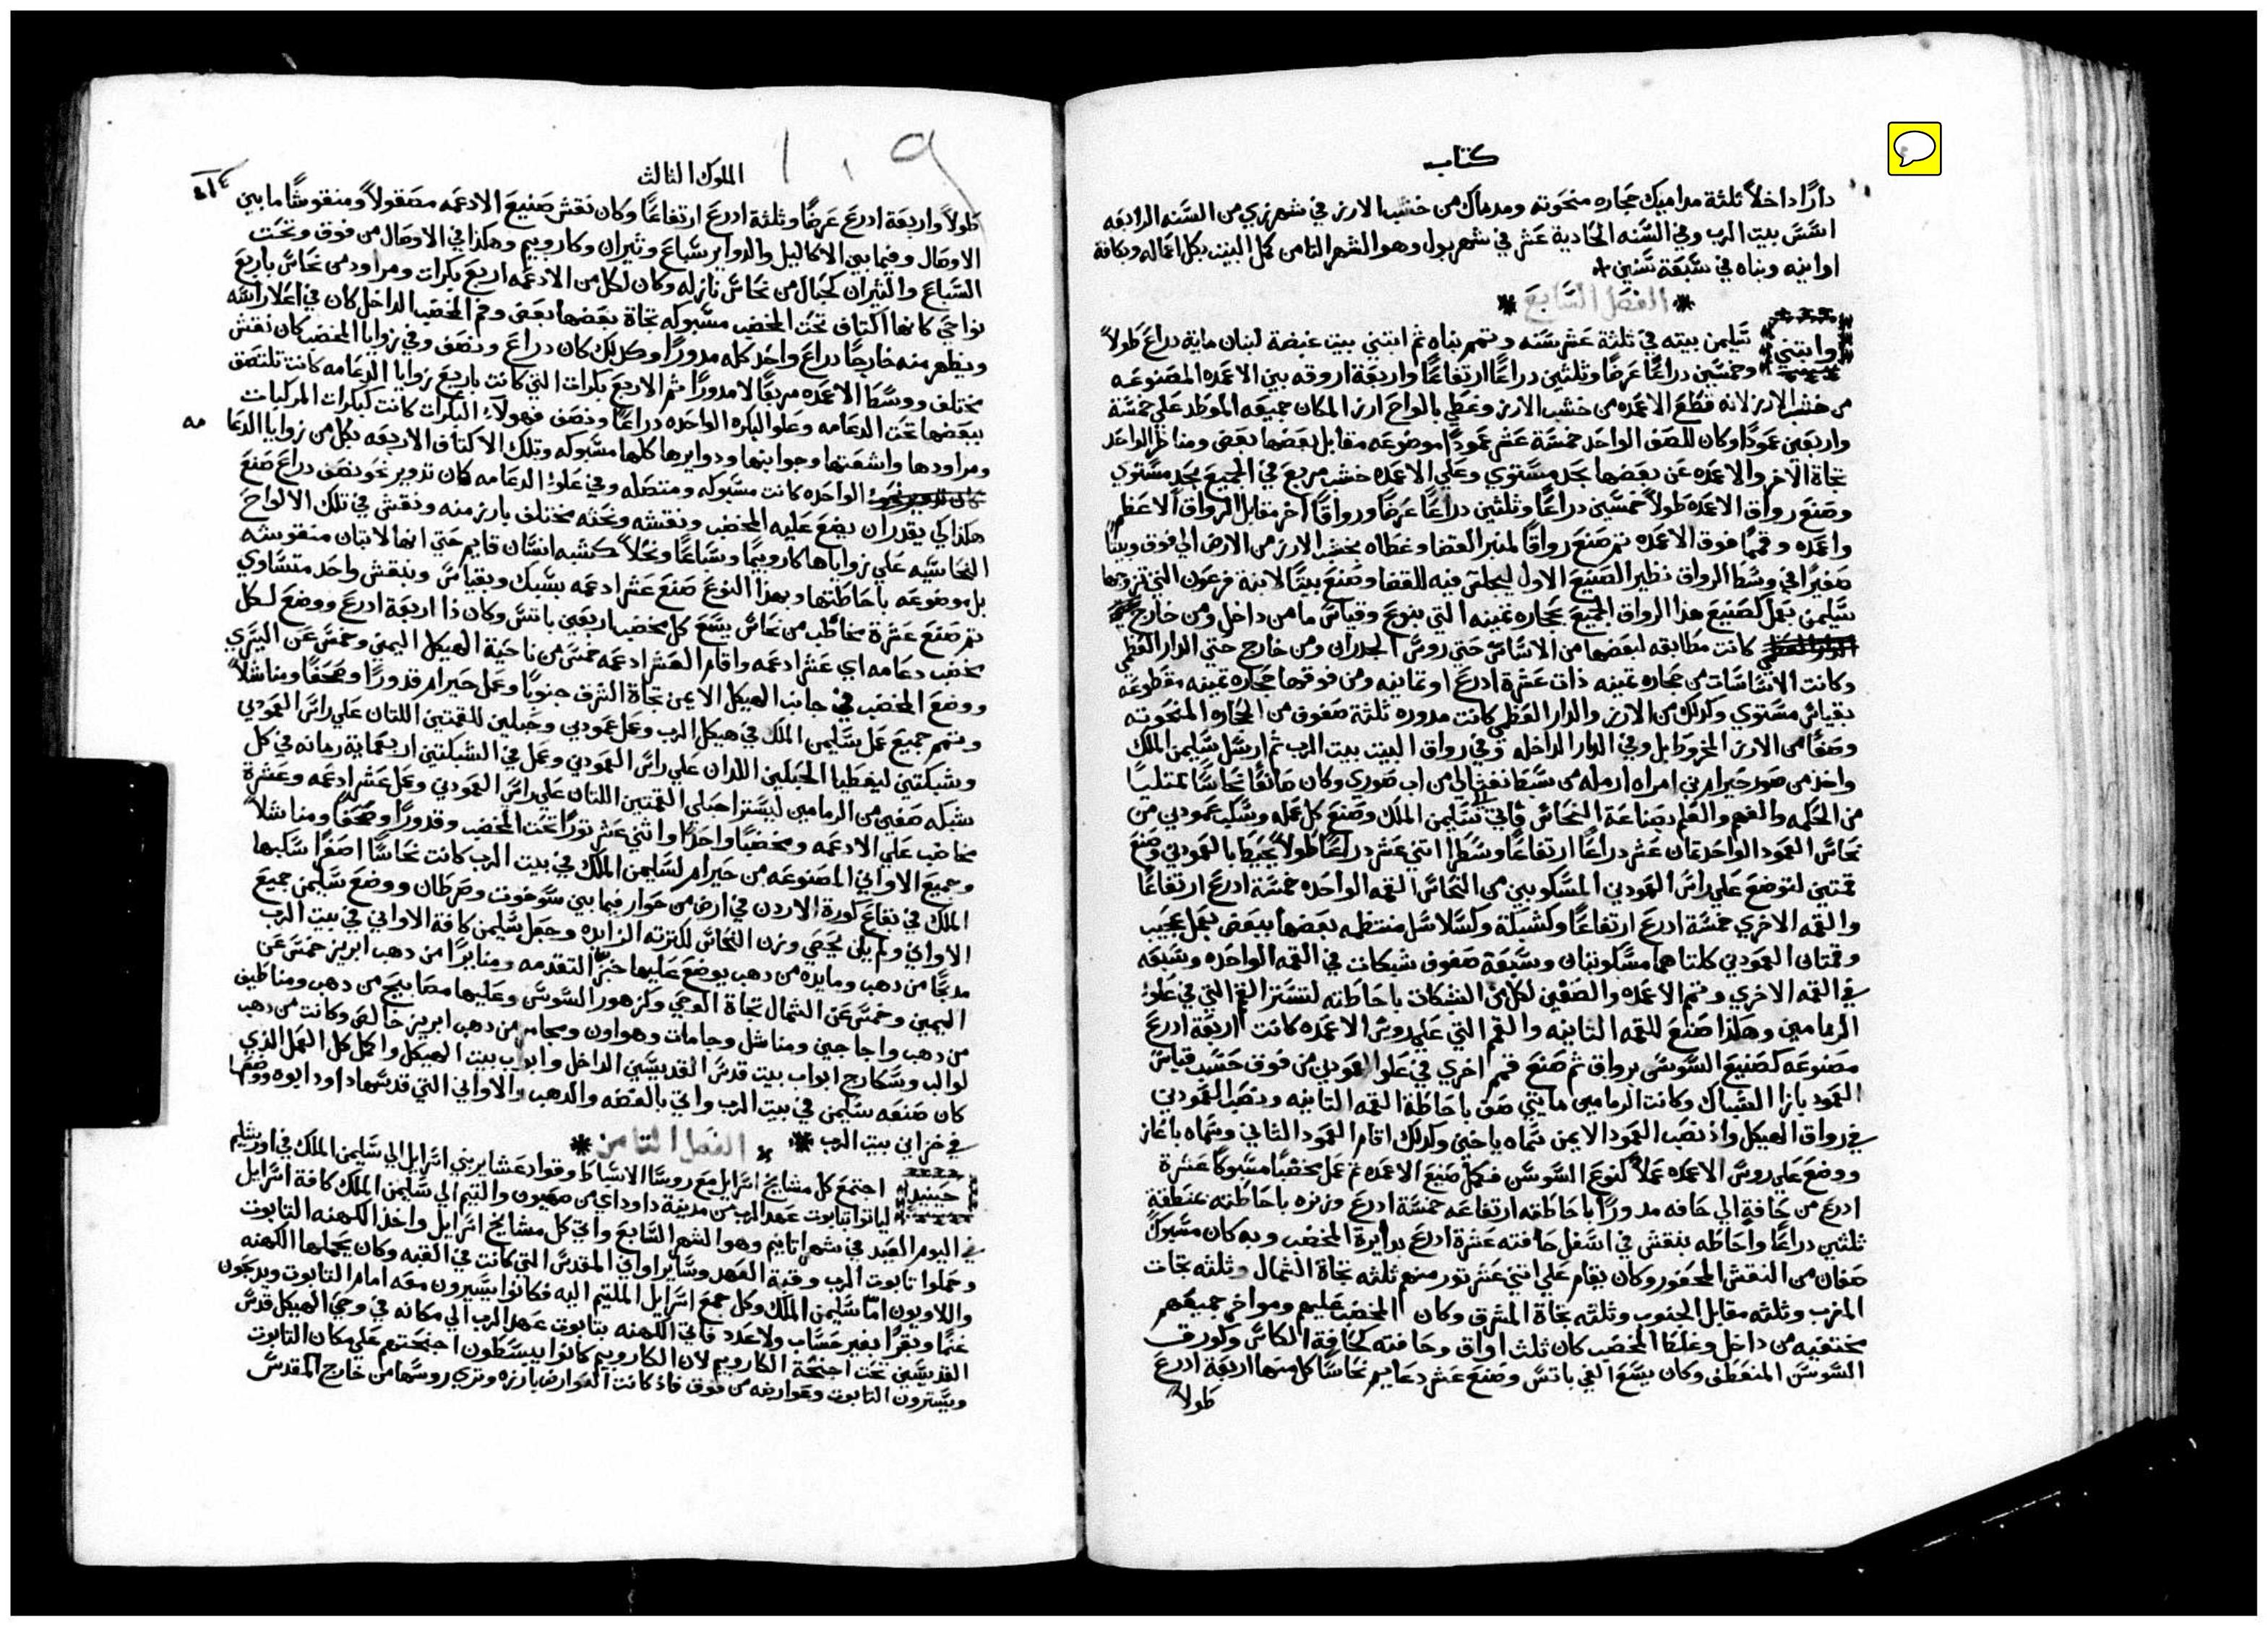 كتاب
دارًا داخلاً ثلثة مداميك حجاره منحوته ومدماك من خشب الارز في شهر زي من السنه الرابعه
اسس بيت الرب وفي السنه الحادية عشر في شهر بول وهو الشهر الثامن كمل البيت بكل اعماله وبكافة
اوانيه وبناه في سبعة سنين
الفصل السابع
وابتني سليمن بيته في ثلثة عشر سنه وتمم بناه ثم ابتني بيت غيضة لبنان ماية دراع طولاً
وخمسين دراعًا عرضًا وثلثين دراعًا ارتفاعًا واربعة اروقه بين الاعمده المصنوعه
من خشب الارز لانه قطع الاعمده من خشب الارز وغطي بالواح ارز المكان جميعه الموطد علي خمسة
واربعين عمودًا وكان للصف الواحد خمسة عشر عمودًا موضوعه مقابل بعضها بعض ومناظر الواحد
تجاة الاخر والاعمده عن بعضها بحد مستوي وعلي الاعمده خشب مربع في الجميع بحد مستوي
وصنع رواق الاعمده طولاً خمسين دراعًا وثلثين دراعًا عرضًا ورواقًا اخر مقابل الرواق الاعظم
واعمده وقممًا فوق الاعمده ثم صنع رواقًا لمنبر القضا وغطاه بخشب الارز من الارض الي فوق وبيتًا
صغيرًا في وسط الرواق نظير الصنيع الاول ليجلس فيه للقضا وصنع بيتًا لابنة فرعون التي تزوجها
سليمن بعمل كصنيع هذا الرواق الجميع بحجاره ثمينه التي بنوع وقياس ما من داخل ومن خارج
كانت مطابقه لبعضها من الاساس حتي روس الجدران ومن خارج حتي الدار العظمي
وكانت الاساسات من حجاره ثمينه ذات عشرة ادرع او ثمانيه ومن فوقها حجاره ثمينه مقطوعه
بقياس مستوي وكذلك من الارز والدار العظمي كانت مدوره ثلثة صفوف من الحجاره المنحوته
وصفًا من الارز المخروط بل وفي الدار الداخله وفي رواق البيت بيت الرب ثم ارسل سليمن الملك
واخذ من صور حيرام بن امراه ارمله من سبط نفثالي من اب صوري وكان صانعًا نحاسًا ممتليًا
من الحكمه والفهم والعلم بصناعة النحاس فاتي سليمن الملك وصنع كل عمله وسكب عمودين من
نحاس العمود الواحد ثمان عشر دراعًا ارتفاعًا وشطرًا اثني عشر دراعًا طولاً يحيط بالعمودين وصنع
قمتين لتوضع علي راس العمودين المسكوبين من النحاس القمه الواحده خمسة ادرع ارتفاعًا
والقمه الاخري خمسة ادرع ارتفاعًا وكشبكة وكسلاسل منتظمه بعضها ببعض بعمل عجيب
وقمتان العمودين كلتاهما مسكوبتان وسبعة صفوف شبكات في القمه الواحده وسبعه
في القمه الاخري وتمم الاعمده والصفين لكل من الشبكات باحاطته لتستر القمم التي في علو
الرمامين وهكذا صنع للقمه الثانيه والقمم التي علي روس الاعمده كانت اربعة ادرع
مصنوعه كصنيع السوسن برواق ثم صنع قمم اخري في علو العمودين من فوق حسب قياس
العمود بازا الشباك وكانت الرمامين مايتي صف باحاطة القمه الثانيه ونصب العمودين
في رواق الهيكل واذ نصب العمود الايمن سماه ياخين وكذلك اقام العمود الثاني وسماه باعاز
ووضع علي روس الاعمده عملاً كنوع السوسن فكمل صنيع الاعمده ثم عمل مخضبًا مسبوكًا عشرة
ادرع من حافةٍ الي حافه مدورًا باحاطته ارتفاعه خمسة ادرع وزنره باحاطته بمنطقة
ثلثين دراعًا واحاطه بنقش في اسفل حافته عشرة ادرع بدايرة المخضب وبه كان مسبوك
صفان من النقش المحفور وكان يقام علي اثني عشر ثور منهم ثلثه تجاة الشمال وثلثه تجات
المغرب وثلثه مقابل الجنوب وثلثه تجاة المشرق وكان المخضب عليهم ومواخر جميعهم
مختفيه من داخل وغلظ المخضب كان ثلث اواق وحافته كحافة الكاس وكورق
السوسن المنعطف وكان يسع الفي باتس وصنع عشر دعايم نحاسًا كل منها اربعة ادرع
طولاً
١٠٩
الملوك الثالث
طولاً واربعة ادرع عرضًا وثلثة ادرع ارتفاعًا وكان نقش صنيع الادعمه مصقولاً ومنقوشًا ما بين
الاوصال وفيما بين الاكاليل والدواير سباع وثيران وكاروبيم وهكذا في الاوصال من فوق وتحت
السباع والثيران كحبال من نحاس نازله وكان لكل من الادعمه اربع بكرات ومراود من نحاس باربع
نواحي كانها اكتاف تحت المخضب مسبوكه تجاة بعضها بعض وفم المخضب الداخل كان في اعلا راسه
ويظهر منه خارجًا دراع واحد كله مدورًا وكذلك كان دراع ونصف وفي زوايا المخضب كان نقش
مختلف ووسط الاعمده مربعًا لا مدورًا ثم الاربع بكرات التي كانت باربع زوايا الدعامه كانت تلتصق
ببعضها تحت الدعامه وعلو البكره الواحده دراعًا ونصف فهولاء البكرات كانت كبكرات المركبات
ومراودها واشعتها وجوانبها ودوايرها كلها مسبوكه وتلك الاكتاف الاربعه بكل من زوايا الدعا مه
الواحده كانت مسبوكه ومتصله وفي علو الدعامه كان تدوير نحو نصف دراع صنع
هكذا كي يقدر ان يضع عليه المخضب ونقشه ونحته مختلف بارز منه ونقش في تلك الالواح
النحاسيه علي زواياها كاروبيمًا وسباعًا ونخلاً كشبه انسان قايم حتي انها لا تبان منقوشه
بل موضوعه باحاطتها وبهذا النوع صنع عشر ادعمه بسبك وبقياس وبنقش واحد متساوي
ثم صنع عشرة مخاضب من نحاس يسع كل مخضب اربعين باتس وكان ذا اربعة ادرع ووضع لكل
مخضب دعامه اي عشر ادعمه واقام العشر ادعمه خمس من ناحية الهيكل اليمين وخمس عن اليسري
ووضع المخضب في جانب الهيكل الايمن تجاة الشرق جنوبًا وعمل حيرام قدورًا وصحفًا ومناشلاً
وتمم جميع عمل سليمن الملك في هيكل الرب وعمل عمودين وحبلين للقمتين اللتان علي راس العمودين
وشبكتين ليغطيا الحبلين اللذان علي راس العمودين وعمل في الشبكتين اربعماية رمانه في كل
شبكه صفين من الرمامين ليسترا حبلي القمتين اللتان علي راس العمودين وعمل عشر ادعمه وعشرة
مخاضب علي الادعمه ومخضبًا واحدًا واثني عشر ثورًا تحت المخضب وقدورًا وصحفًا ومناشلاً
وجميع الاواني المصنوعه من حيرام لسليمن الملك في بيت الرب كانت نحاسًا اصفرًا سكبها
الملك في بقاع كورة الاردن في ارض من حوار فيما بين سوخوت وصرطان ووضع سليمن جميع
الاواني ولم يكن يحصي وزن النحاس لكثرته الزايده وجعل سليمن كافة الاواني في بيت الرب
مدبحًا من دهب ومايده من دهب يوضع عليها خبز التقدمه ومنايرًا من دهب ابريز خمس عن
اليمين وخمس عن الشمال تجاة الوحي وكزهور السوسن وعليها مصابيح من دهب ومناطيق
من دهب واجاجين ومناشل وجامات وهواون ومجامر من دهب ابريز خالص وكانت من دهب
لوالب وسكارج ابواب بيت قدس القديسين الداخل وابواب بيت الهيكل واكمل كل العمل الذي
كان صنعه سليمن في بيت الرب واتي بالفضه والدهب والاواني التي قدسها داود ابوه ووضعها
في خزاين بيت الرب الفصل الثامن
حينيذ اجتمع كل مشايخ اسرايل مع روسا الاسباط وقواد عشاير بني اسرايل الي سليمن الملك في اورشليم
لياتوا بتابوت عهد الرب من مدينة داود اي من صهيون والتيم الي سليمن الملك كافة اسرايل
في اليوم العيد في شهر اتانيم وهو الشهر السابع واتي كل مشايخ اسرايل واخذ الكهنه التابوت
وحملوا تابوت الرب وقبة العهد وساير اواني المقدس التي كانت في القبه وكان يحملها الكهنه
واللاويون اما سليمن الملك وكل جمع اسرايل الملتيم اليه فكانوا يسيرون معه امام التابوت ويدبحون
غنمًا وبقرًا بغير حساب ولا عدد فاتي الكهنه بتابوت عهد الرب الي مكانه في وحي الهيكل قدس
القديسين تحت اجنحة الكاروبيم لان الكاروبيم كانوا يبسطون اجنحتهم علي مكان التابوت
ويسترون التابوت وعوارضه من فوق فاذ كانت العوارض بارزه وتري روسها من خارج المقدس